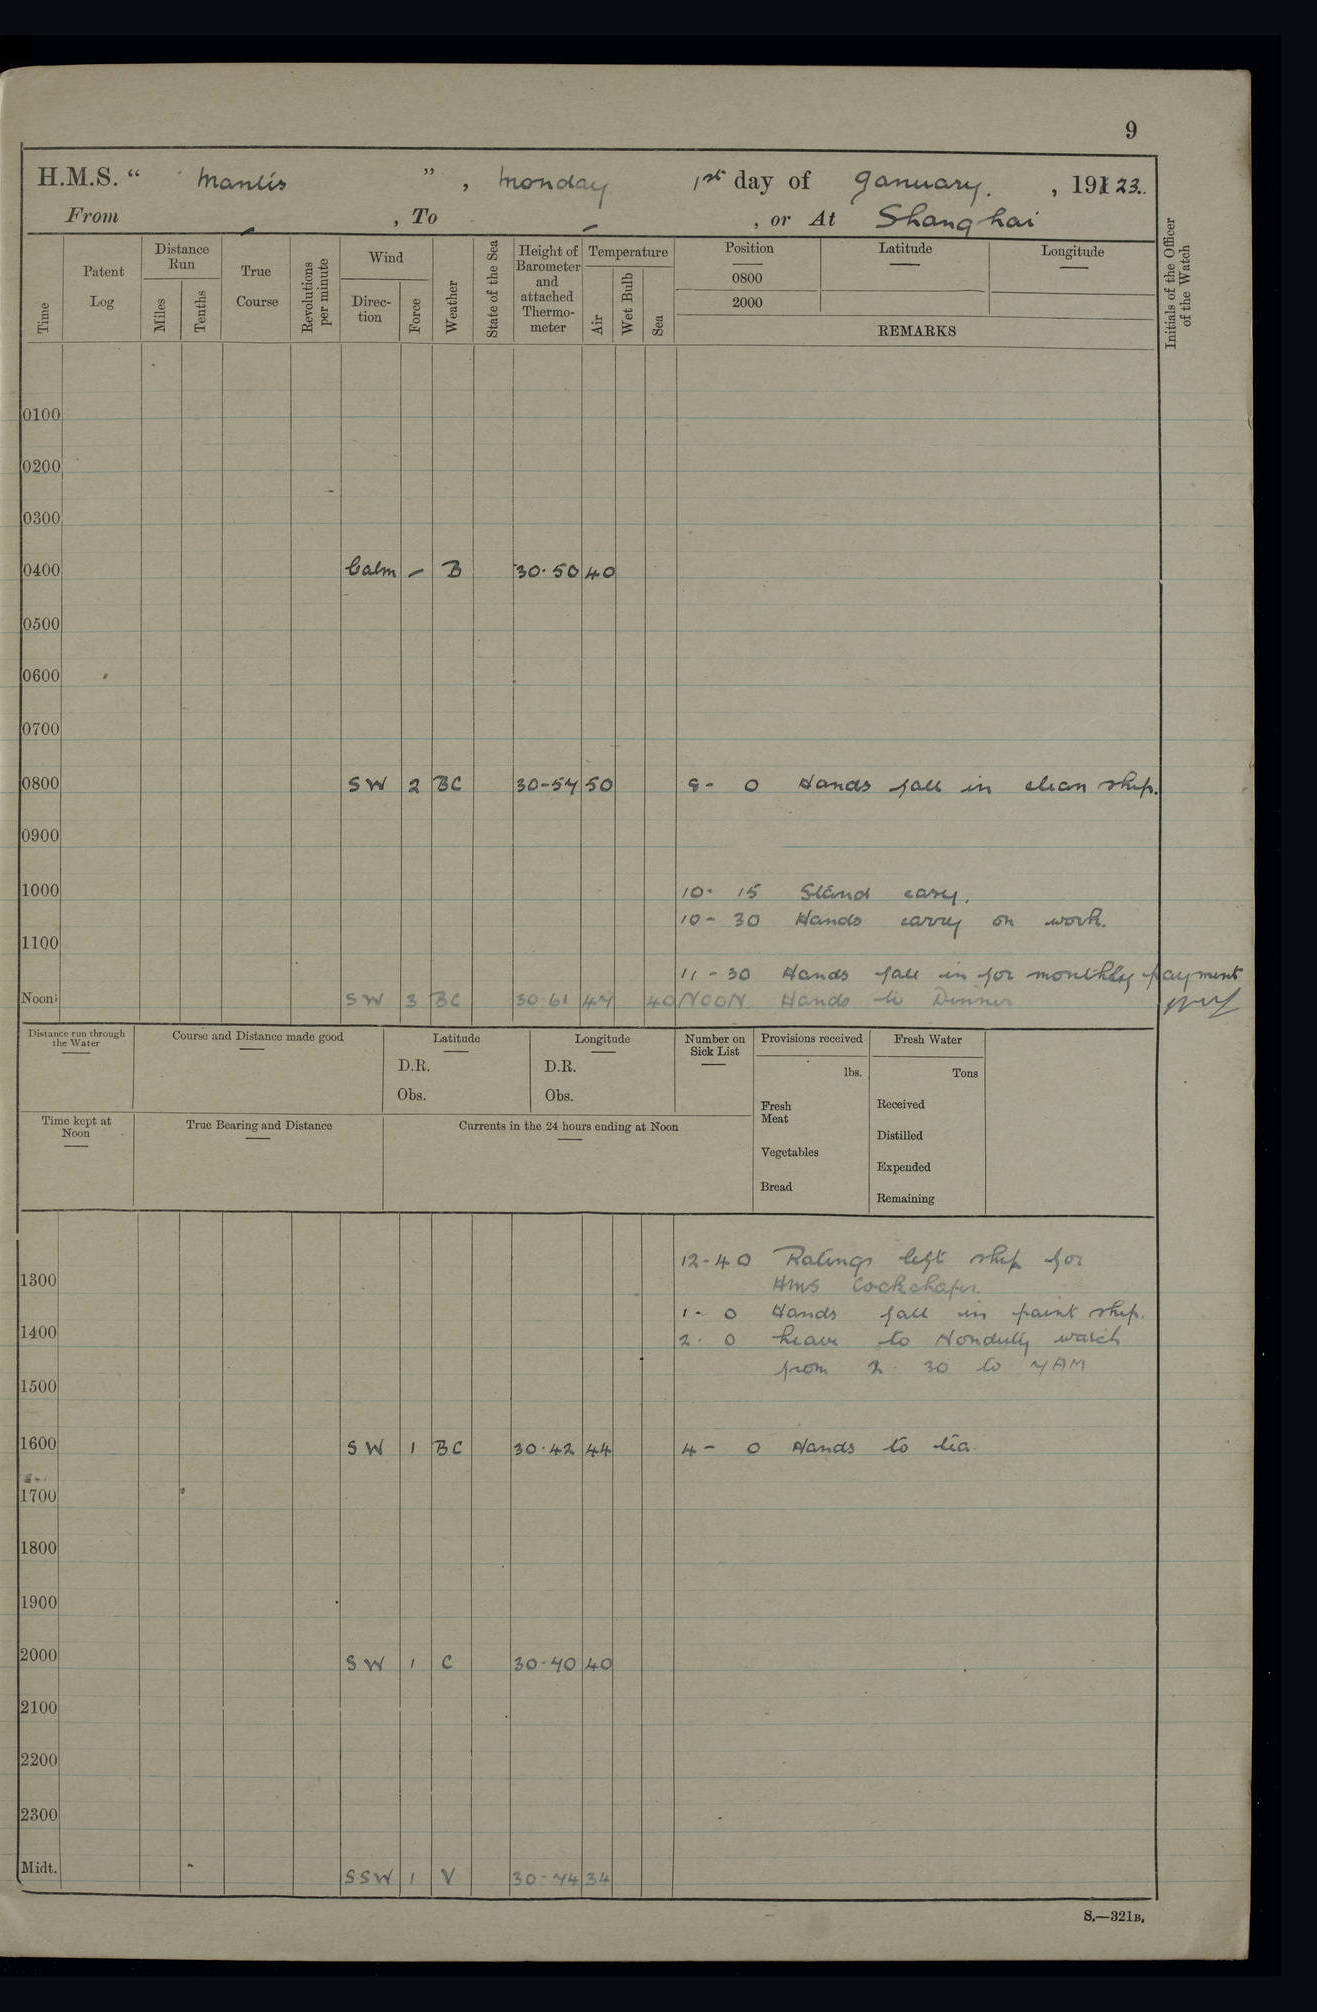 9
H.M.S. “ Mantis ” , Monday 1st day of January. , 191 23.
From - , To - , or At Shanghai
Time
Patent Log
Distance Run
Miles
Tenths
True Course
Revolutions per minute
Wind
Direction
Force
Weather
State of the Sea
Height of Barometer and attached Thermometer
Temperature
Air
Wet Bulb
Sea
Position
Latitude
Longitude
0800
2000
REMARKS
Initials of the Officer of the Watch
0100
0200
0300
0400 Calm - B 30.50 40
0500
0600
0700
0800 SW 2 BC 30-54 50 8- 0 Hands fall in clean ship.
0900
1000 10. 15 Stand easy.
10- 30 Hands carry on work.
1100
11-30 Hands fall in for monthly payment
Noon SW 3 BC 30.61 47 40 NOON Hands to Dinner
Distance run through the Water
Course and Distance made good
Latitude
D.R.
Obs.
Longitude
D.R.
Obs.
Number on Sick List
Provisions received
lbs.
Fresh Meat
Vegetables
Bread
Fresh Water
Tons
Received
Distilled
Expended
Remaining
Time kept at Noon
True Bearing and Distance
Currents in the 24 hours ending at Noon
12-40 Ratings left ship for
1300 HMS Cockchafer
1- 0 Hands fall in paint ship.
1400 2. 0 leave to Nonduty watch
from 2. 30 to 7AM
1500
1600 SW 1 BC 30.42 44 4- 0 Hands to tea.
1700
1800
1900
2000 SW 1 C 30.40 40
2100
2200
2300
Midt. SSW 1 V 30-44 34
S.—321B.